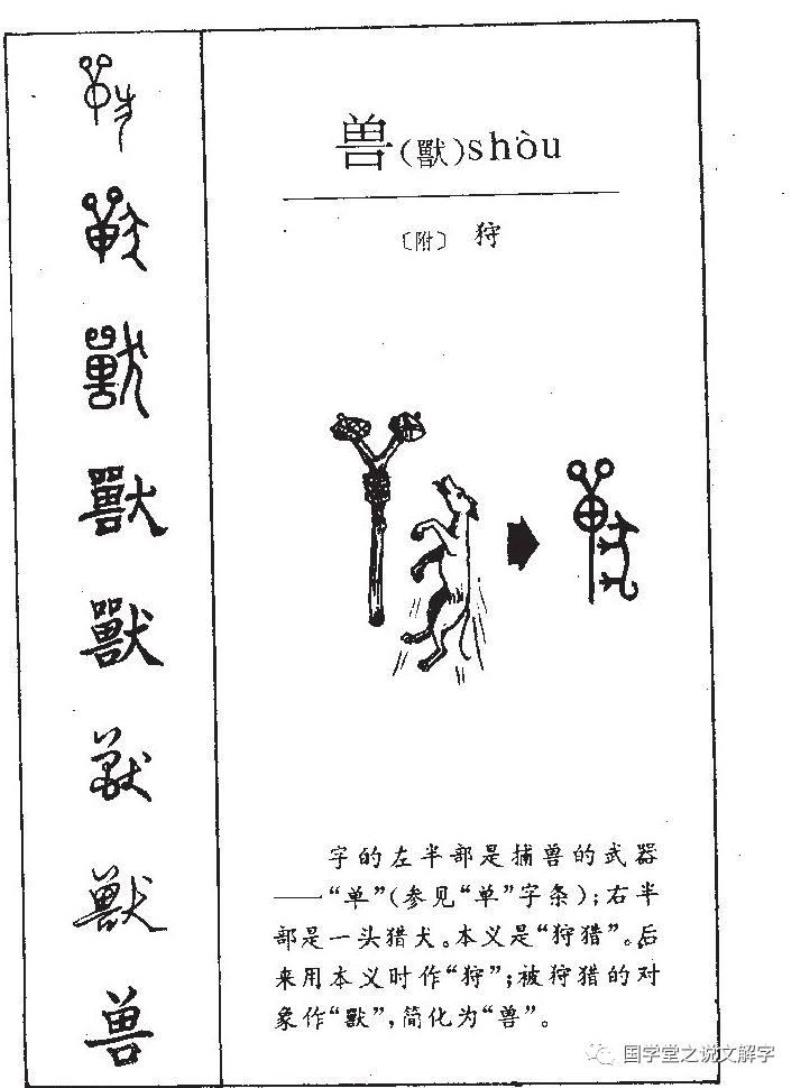 兽(獸)shòu
〔附〕 狩
獸
獸
獸
兽
字的左半部是捕兽的武器
——“单”(参见“单”字条);右半
部是一头猎犬。本义是“狩猎”。后
来用本义时作“狩”;被狩猎的对
象作“獸”,简化为“兽”。
国学堂之说文解字